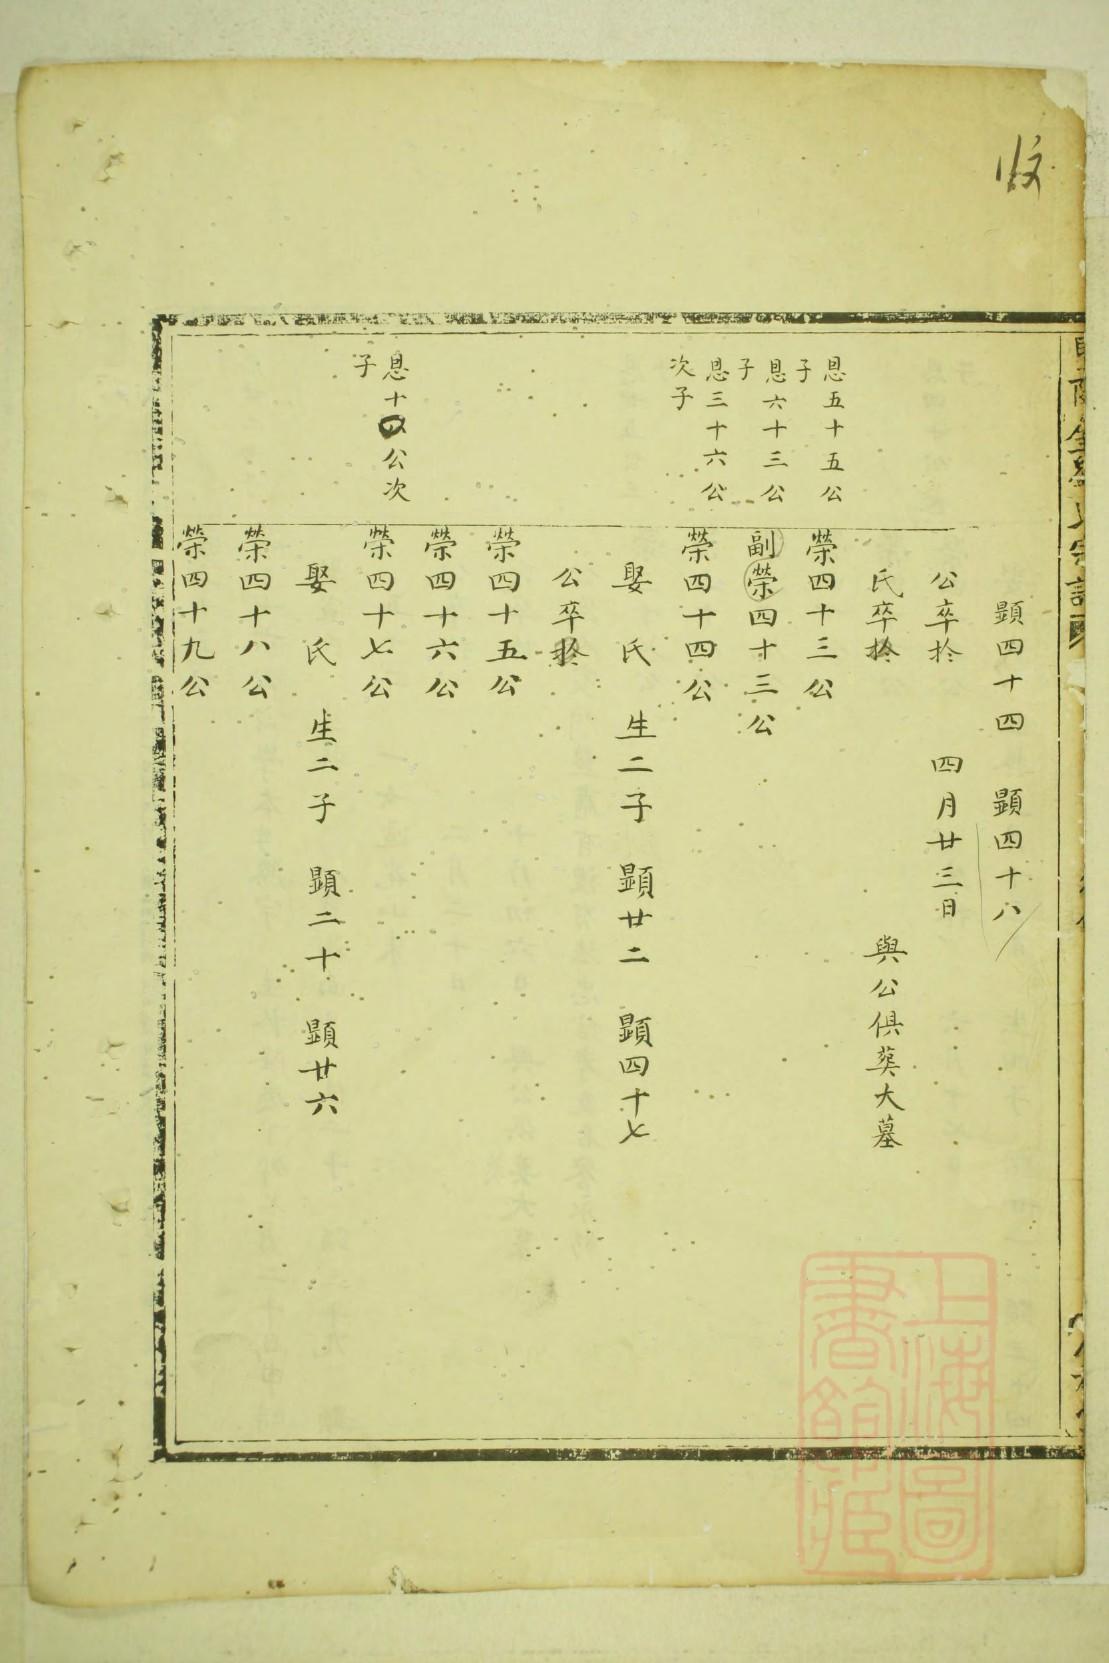 顕四十四 顕四十八
公卒於 四月廿三日
氏卒於 與公俱葬大墓
恩五十五公子
榮四十三公
恩六十三公子
副榮四十三公
恩三十六公次子
榮四十四公
娶 氏 生二子 顕廿二 顕四十七
公卒於
榮四十五公
榮四十六公
恩十四公次子
榮四十七公
娶 氏 生二子 顕二十 顕廿六
榮四十八公
榮四十九公
上海圖書館藏